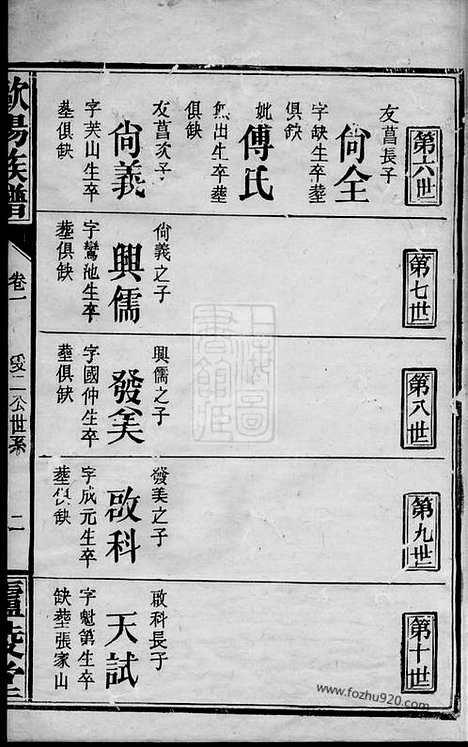 第六世
友菖長子
尙全
字缺生卒葬
俱缺
妣
傅氏
無出生卒葬
俱缺
友菖次子
尙義
字芙山生卒
葬俱缺
第七世
尙義之子
興儒
字鸞池生卒
葬俱缺
第八世
興儒之子
發美
字國仲生卒
葬俱缺
第九世
發美之子
啟科
字成元生卒
葬俱缺
第十世
啟科長子
天試
字魁第生卒
缺葬張家山
歐陽族譜
卷一
二公世系
二
上海圖
書館藏
www.fozhu920.com